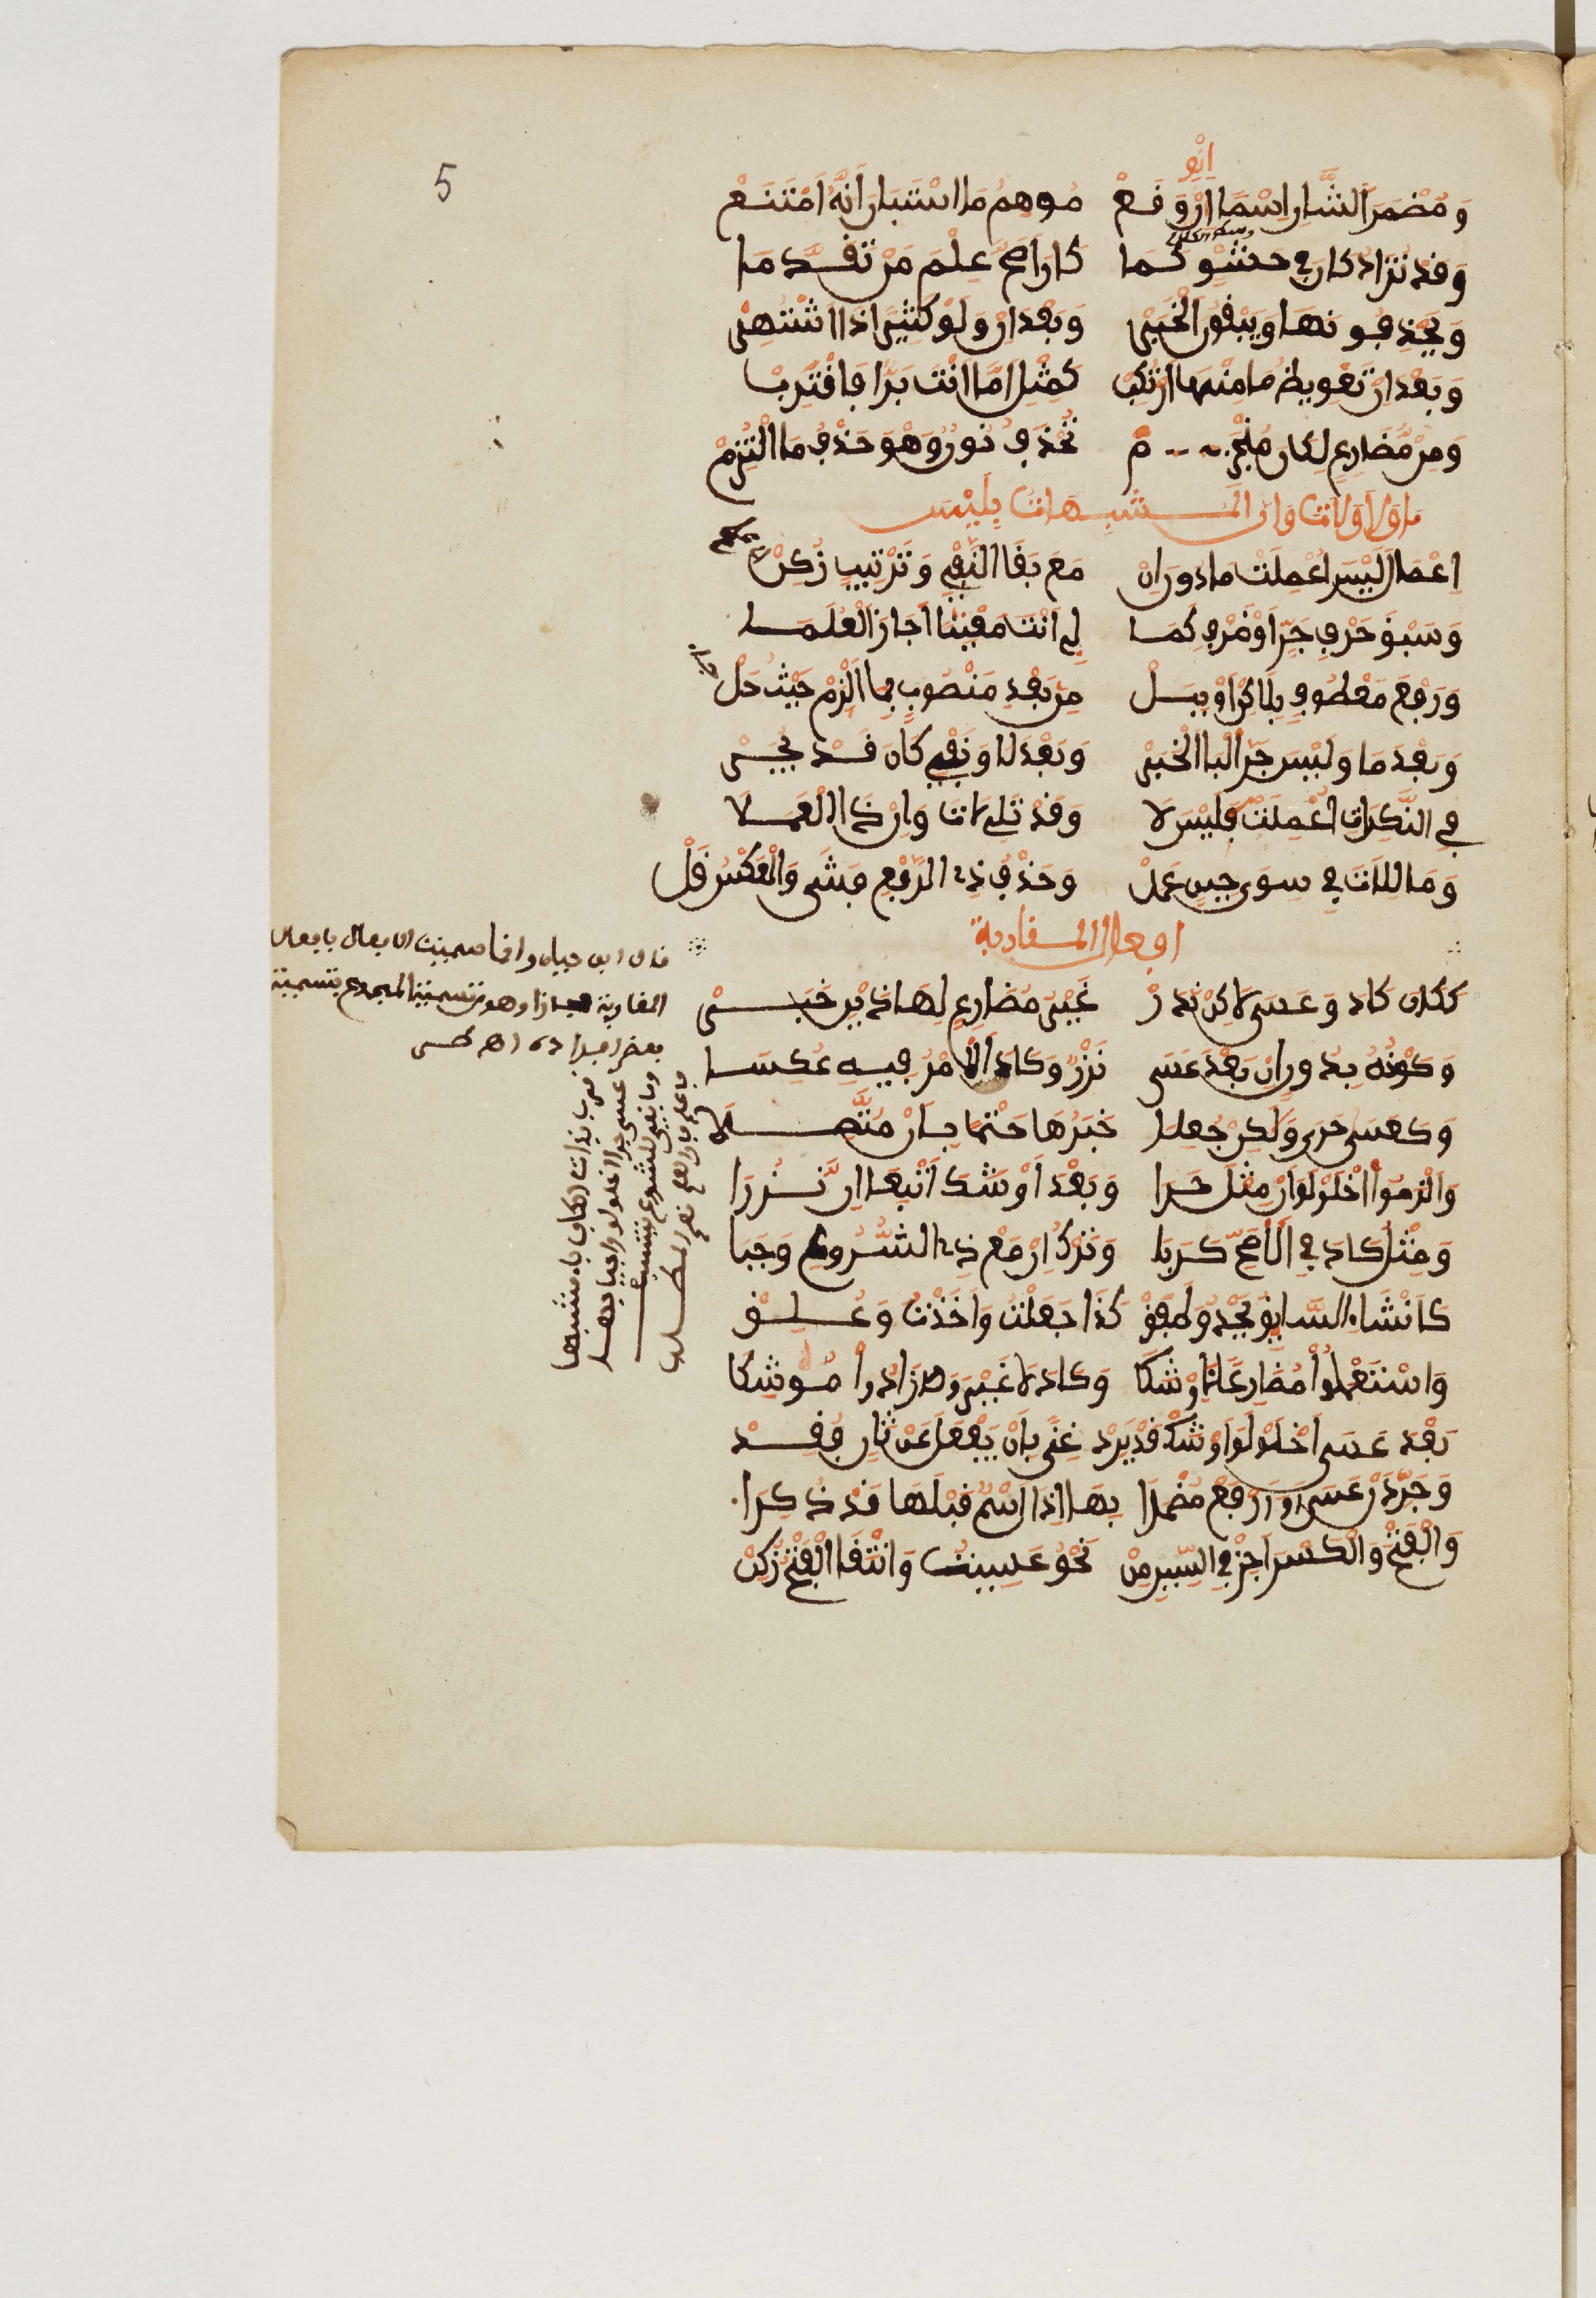 5
انو
وَمُضْمَرَ الشَّانِ اسْمًا انْوِ وَقَعْ مُوهِمُ مَا اسْتَبَانَ أَنَّهُ امْتَنَعْ
وَقَدْ تُزَادُ كَانَ فِي حَشْوٍ كَمَا كَانَ أَصَحَّ عِلْمَ مَنْ تَقَدَّمَا
وَيَحْذِفُونَهَا وَيُبْقُونَ الْخَبَرْ وَبَعْدَ إِنْ وَلَوْ كَثِيرًا ذَا اشْتَهَرْ
وَبَعْدَ أَنْ تَعْوِيضُ مَا عَنْهَا ارْتُكِبْ كَمِثْلِ أَمَّا أَنْتَ بَرًّا فَاقْتَرِبْ
وَمِنْ مُضَارِعٍ لِكَانَ مُنْجَزِمْ تُحْذَفُ نُونٌ وَهْوَ حَذْفٌ مَا الْتُزِمْ
مَا وَلَا وَلَاتَ وَإِنْ الْمُشَبَّهَاتُ بِلَيْسَ
إِعْمَالَ لَيْسَ أُعْمِلَتْ مَا دُونَ إِنْ مَعَ بَقَا النَّفْيِ وَتَرْتِيبٍ زُكِنْ
وَسَبْقَ حَرْفِ جَرٍّ أَوْ ظَرْفٍ كَمَا بِي أَنْتَ مَعْنِيًّا أَجَازَ الْعُلَمَا
وَرَفْعَ مَعْطُوفٍ بِلَكِنْ أَوْ بِبَلْ مِنْ بَعْدِ مَنْصُوبٍ بِمَا الْزَمْ حَيْثُ حَلْ
وَبَعْدَ مَا وَلَيْسَ جَرَّ الْبَا الْخَبَرْ وَبَعْدَ لَا وَنَفْيِ كَانَ قَدْ يُجَرْ
فِي النَّكِرَاتِ أُعْمِلَتْ كَلَيْسَ لَا وَقَدْ تَلِي لَاتَ وَإِنْ ذَا الْعَمَلَا
وَمَا لِلَاتَ فِي سِوَى حِينٍ عَمَلْ وَحَذْفُ ذِي الرَّفْعِ فَشَى وَالْعَكْسُ قَلْ
افعال المقاربة
كَكَانَ كَادَ وَعَسَى لَكِنْ نَدَرْ غَيْرُ مُضَارِعٍ لِهَذَيْنِ خَبَرْ
وَكَوْنُهُ بِدُونِ أَنْ بَعْدَ عَسَى نَزْرٌ وَكَادَ الْأَمْرُ فِيهِ عُكِسَا
وَكَعَسَى حَرَى وَلَكِنْ جُعِلَا خَبَرُهَا حَتْمًا بِأَنْ مُتَّصِلَا
وَأَلْزَمُوا اخْلَوْلَقَ أَنْ مِثْلَ حَرَا وَبَعْدَ أَوْشَكَ انْتِفَا أَنْ نَزُرَا
وَمِثْلُ كَادَ فِي الْأَصَحِّ كَرَبَا وَتَرْكُ أَنْ مَعْ ذِي الشُّرُوعِ وَجَبَا
كَأَنْشَأَ السَّائِقُ يَحْدُو وَطَفِقْ كَذَا جَعَلْتُ وَأَخَذْتُ وَعَلِقْ
وَاسْتَعْمَلُوا مُضَارِعًا لِأَوْشَكَا وَكَادَ لَا غَيْرُ وَزَادُوا مُوشِكَا
بَعْدَ عَسَى اخْلَوْلَقَ أَوْشَكْ قَدْ يَرِدْ غِنًى بِأَنْ يَفْعَلَ عَنْ ثَانٍ فُقِدْ
وَجَرِّدَنْ عَسَى أَوِ ارْفَعْ مُضْمَرَا بِهَا إِذَا اسْمٌ قَبْلَهَا قَدْ ذُكِرَا
وَالْفَتْحَ وَالْكَسْرَ أَجِزْ فِي السِّينِ مِنْ نَحْوِ عَسِيتُ وَانْتِقَا الْفَتْحِ زُكِنْ
قال ابن حيان وانما سميت الافعال بافعال
المقاربة مجازا وهو تسمية المجموع بتسمية
بعض